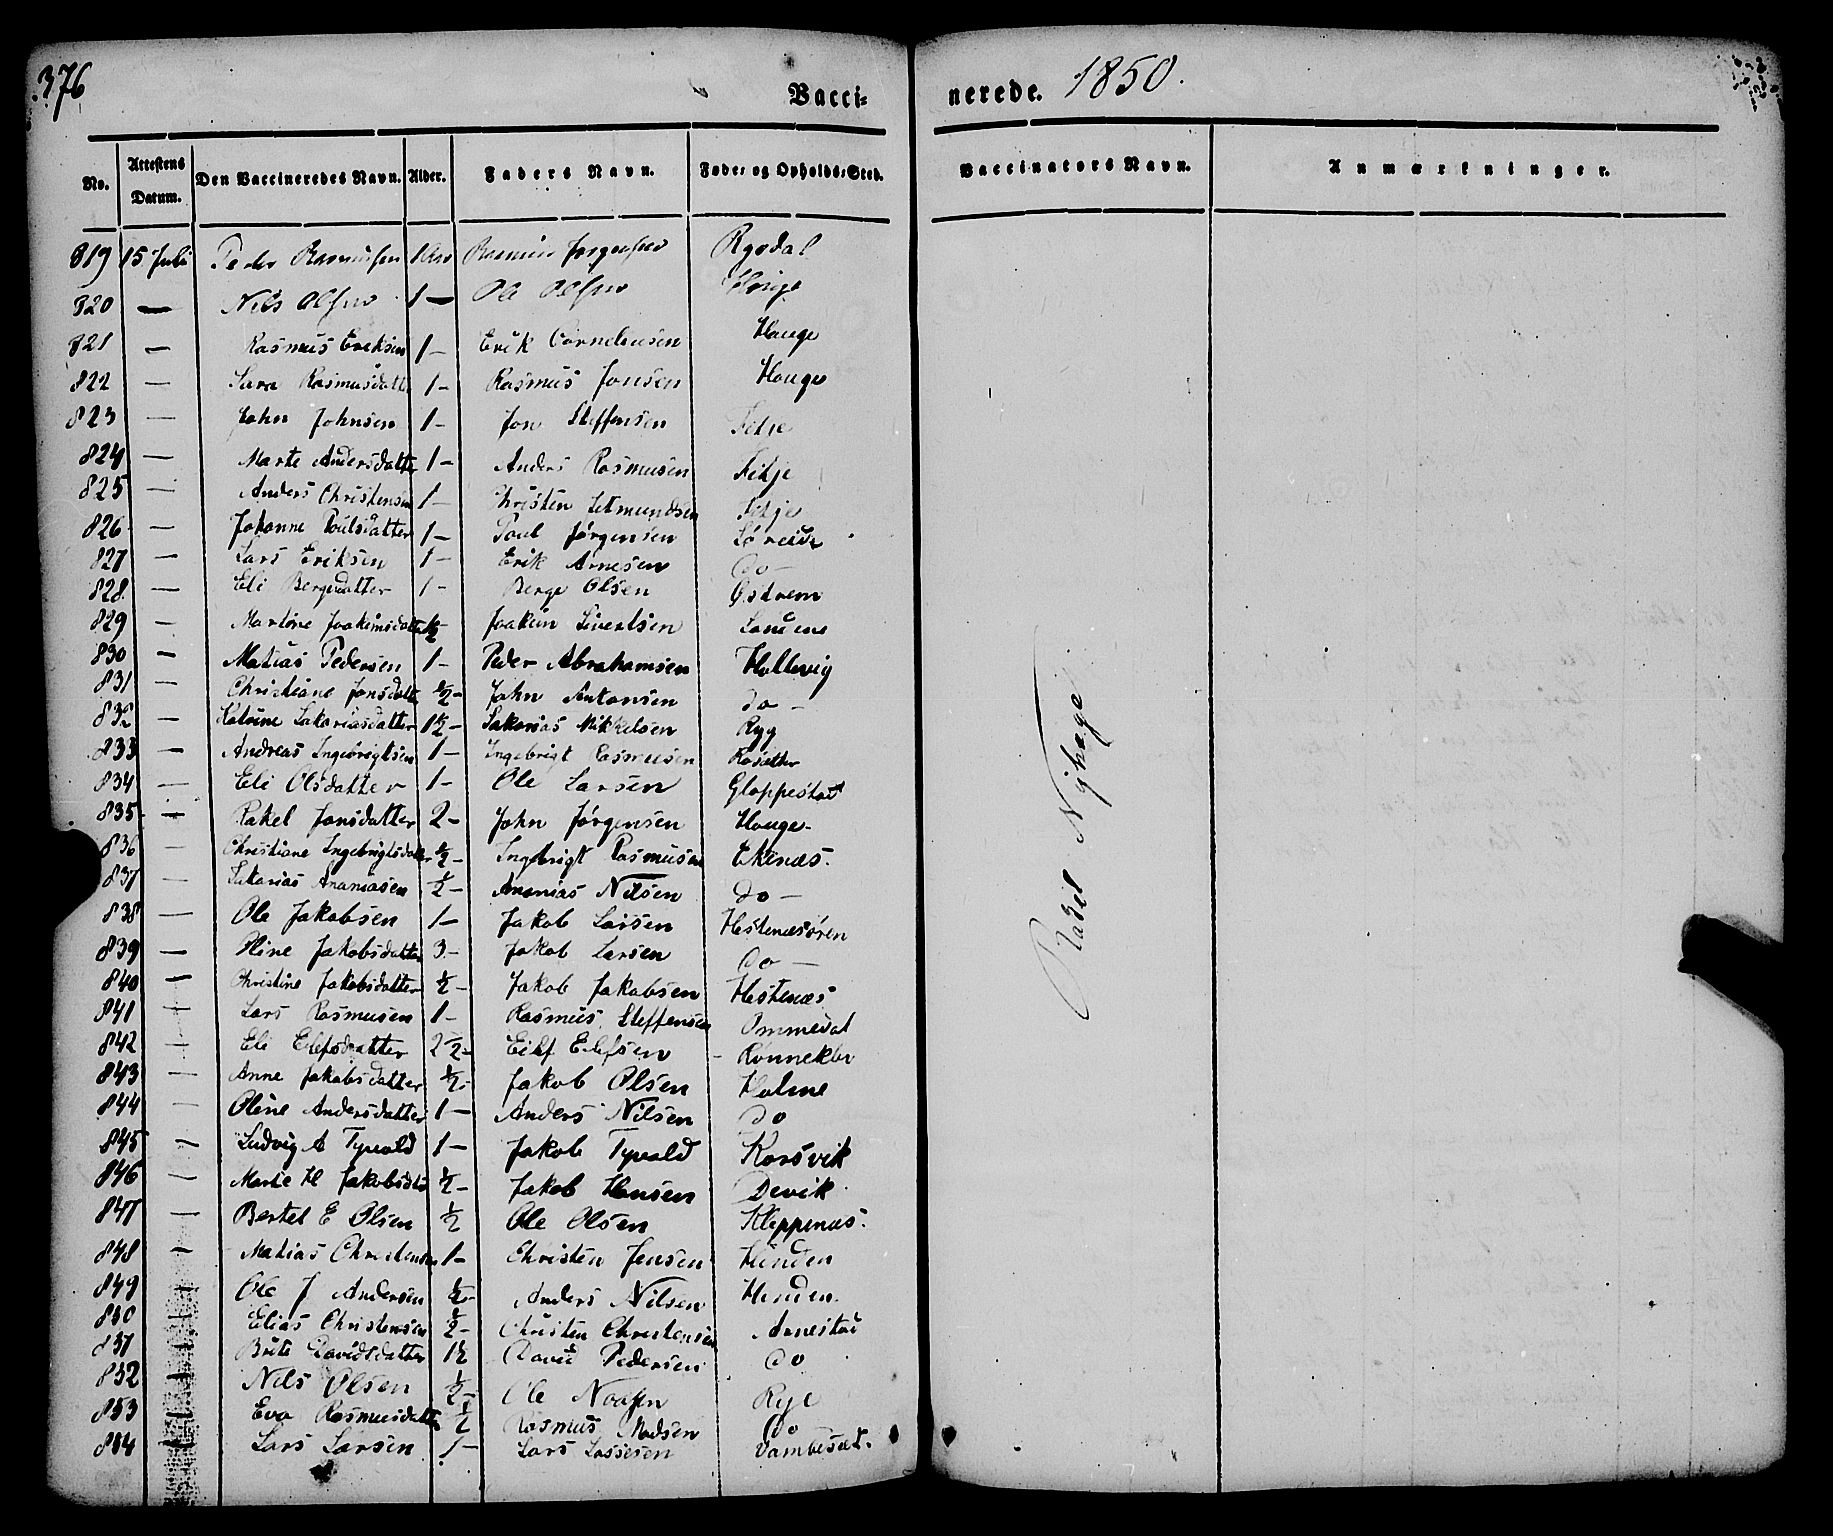 376
Vacci-
nerede. 1850.
No. Attestens Datum. Den Vaccineredes Navn. Alder. Faders Navn. Føde- og Opholds-Sted. Vaccinators Navn. Anmærkninger.
819 15 Juli Peder Rasmussen 1 Aar Rasmus Jørgensen Rygdal
820 — Nils Olsen 1 — Ole Olsen
821 — Rasmus Eriksen 1 — Erik Corneliusen Hauge
822 — Sara Rasmusdatter 1 — Rasmus Jonsen Hauge
823 — John Johnsen 1 — Jon Steffensen Fitje
824 — Marte Andersdatter 1 — Anders Rasmusen Fitje
825 — Anders Christensen 1 — Christen Setmundsen Fitje
826 — Johanne Poulsdatter 1 — Poul Jørgensen Søreide
827 — Lars Eriksen 1 — Erik Arnesen Do —
828 — Eli Bergesdatter 1 — Berge Olsen Østrem
829 — Martine Joakimsdatter ½ — Joakim Sivertsen Sandene
830 — Matias Pedersen 1 — Peder Abrahamsen Hollevig
831 — Christiane Jonsdatter ½ — John Antonsen do —
832 — Katrine Sakariasdatter 1½ — Sakarias Mikkelsen Ryg
833 — Andreas Ingebrigtsen 1 — Ingebrigt Rasmusen Rosætter
834 — Eli Olsdatter 1 — Ole Larsen Gloppestad
835 — Rakel Jonsdatter 2 — John Jørgensen Hauge
836 — Christiane Ingebrigtsdatter ½ — Ingebrigt Rasmusen Ekenæs.
837 — Sakarias Ananiasen ½ — Ananias Nilsen do —
838 — Ole Jakobsen 1 — Jakob Larsen Hestenæsøren
839 — Oline Jakobsdatter 3 — Jakob Larsen Do —
840 — Christine Jakobsdatter ½ — Jakob Jakobsen Hestenæs
841 — Lars Rasmusen 1 — Rasmus Steffensen Ommedal
842 — Eli Elefsdatter 2½ — Eilef Elefsen Rønnekler
843 — Anne Jakobsdatter ½ — Jakob Olsen Holme
844 — Oline Andersdatter 1 — Anders Nilsen do
845 — Ludvig A Tyvold 1 — Jakob Tyvold Korsvik
846 — Marte H Jakobsdtr ½ — Jakob Hansen Devik
847 — Bertel E Olsen ½ Ole Olsen Kleppenæs.
848 — Matias Christensen 1 — Christen Jensen Hinden
849 — Ole J Andersen ½ — Anders Nilsen Hinden
850 — Elias Christensen ½ — Christen Christensen Arnestad
851 — Brite Davidsdatter 1½ David Pedersen do
852 — Nils Olsen ½ — Ole Noasen Rye
853 — Eva Rasmusdatter ½ Rasmus Madsen Do
854 — Lars Larsen 1 — Lars Lassesen Vambeset.
Rakel Nyhage